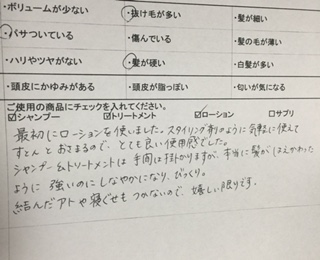 ・ボリュームが少ない ・抜け毛が多い ・髪が細い
・パサついている ・傷んでいる ・髪の毛が薄い
・ハリやツヤがない ・髪が硬い ・白髪が多い
・頭皮にかゆみがある ・頭皮が脂っぽい ・匂いが気になる
ご使用の商品にチェックを入れてください。
☑シャンプー ☑トリートメント ☑ローション □サプリ
最初にローションを使いました。スタイリング剤のように気軽に使えて
すとんとおさまるので、とても良い使用感でした。
シャンプー&トリートメントは手間は掛かりますが、本当に髪がはえかわった
ように強いのにしなやかになり、びっくり。
結んだアトや寝ぐせもつかないので、嬉しい限りです。